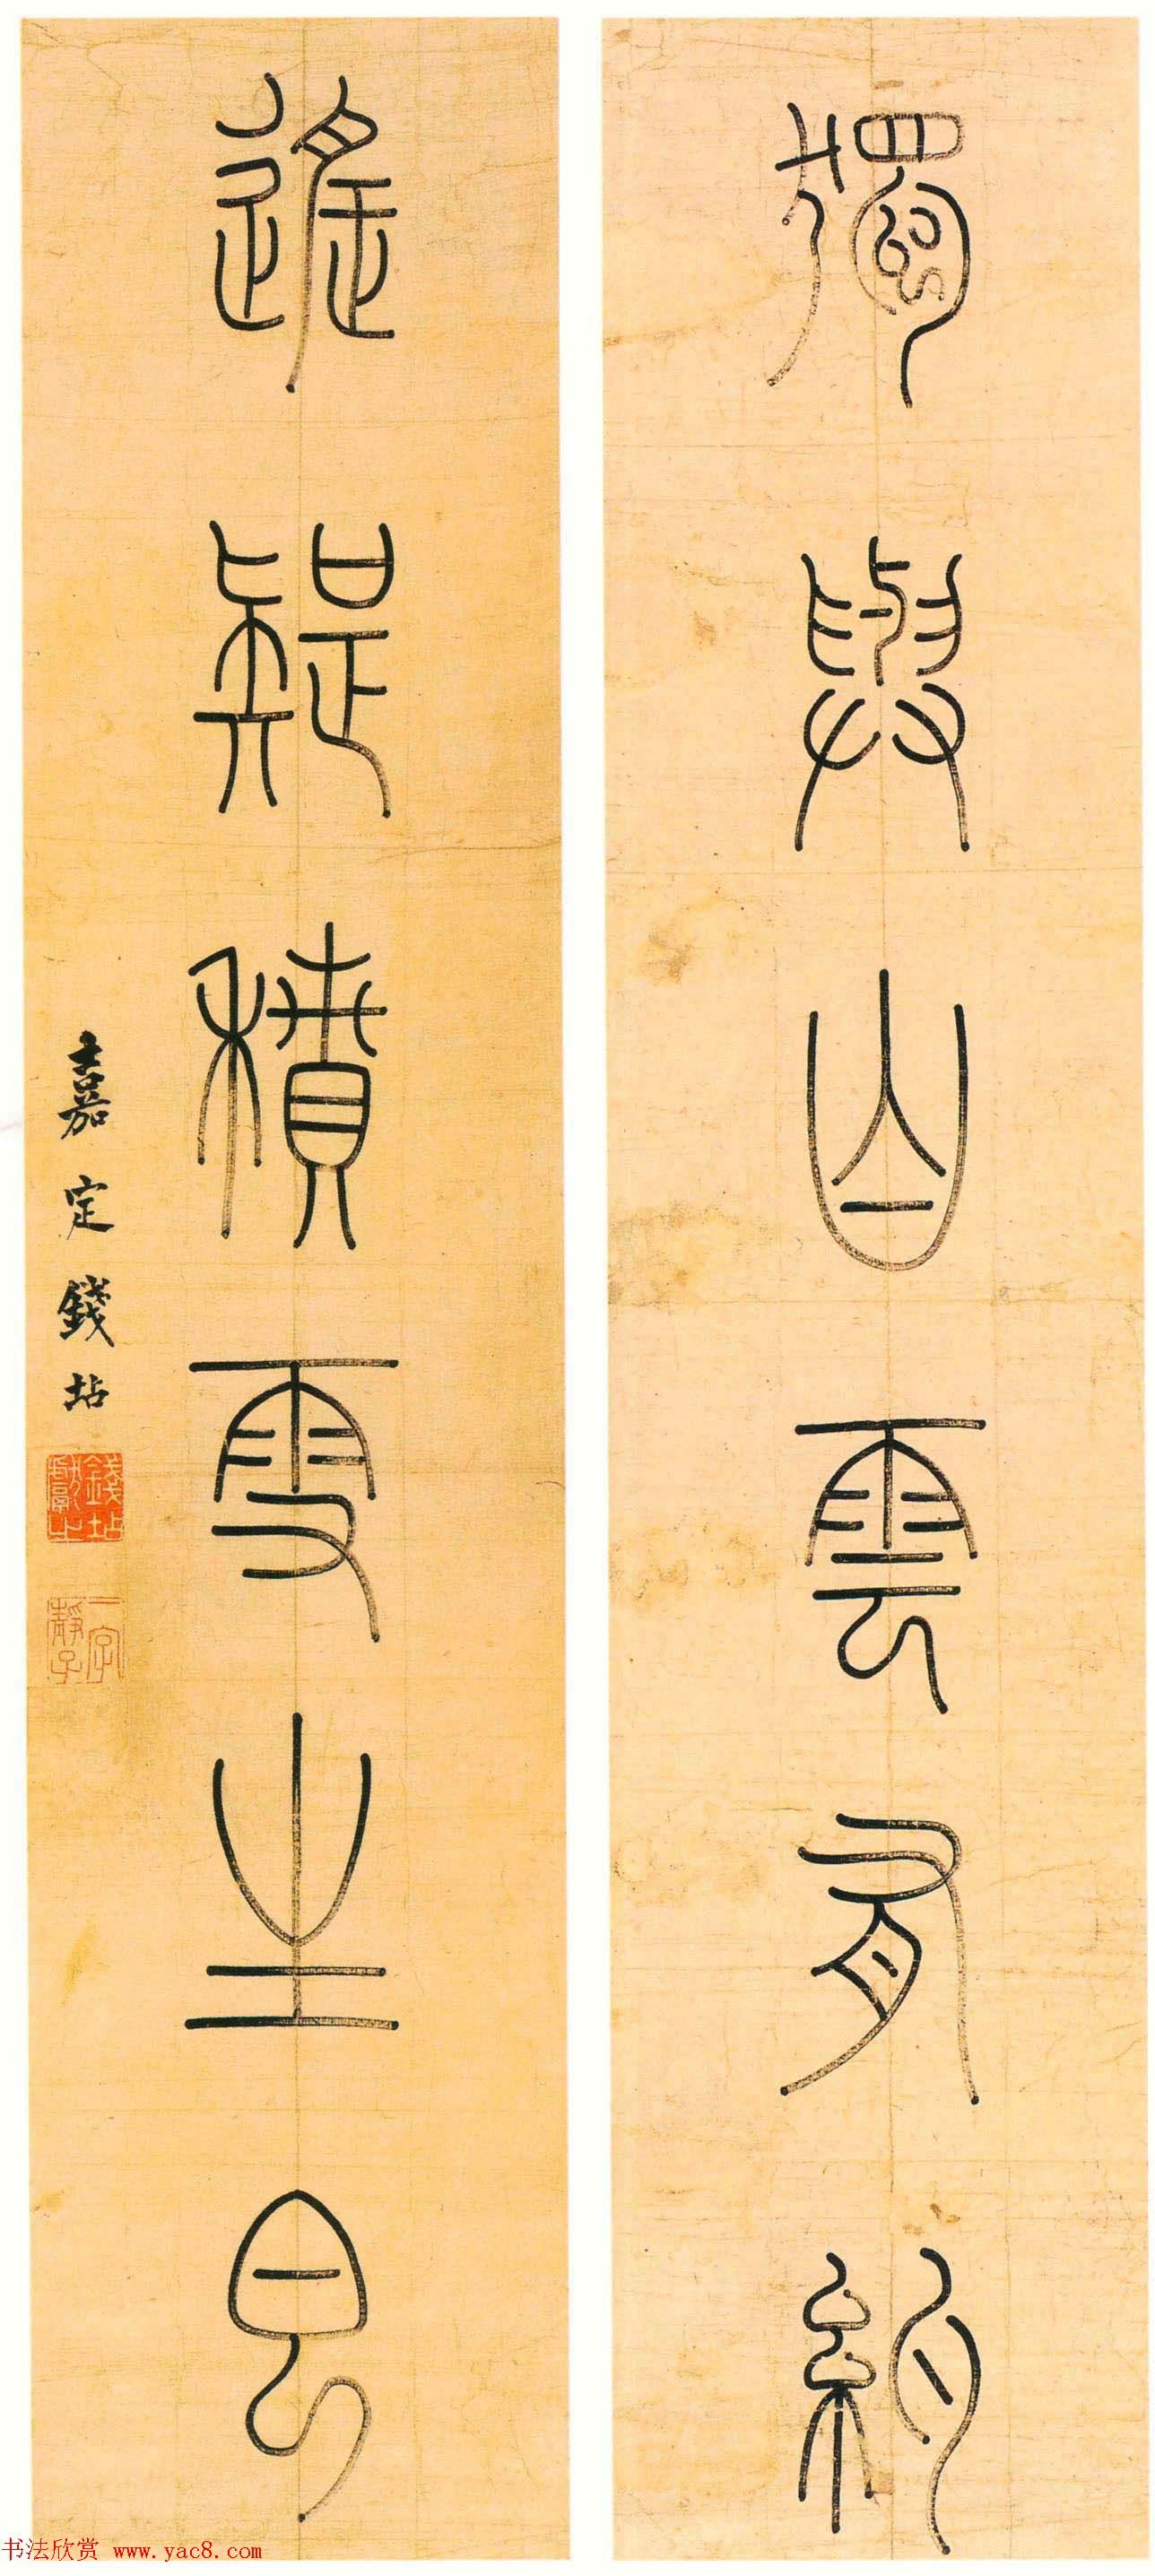 獨與山雲有約
遙 積雪生
嘉定錢坫
錢坫獻之
www.yac8.com
书法欣赏